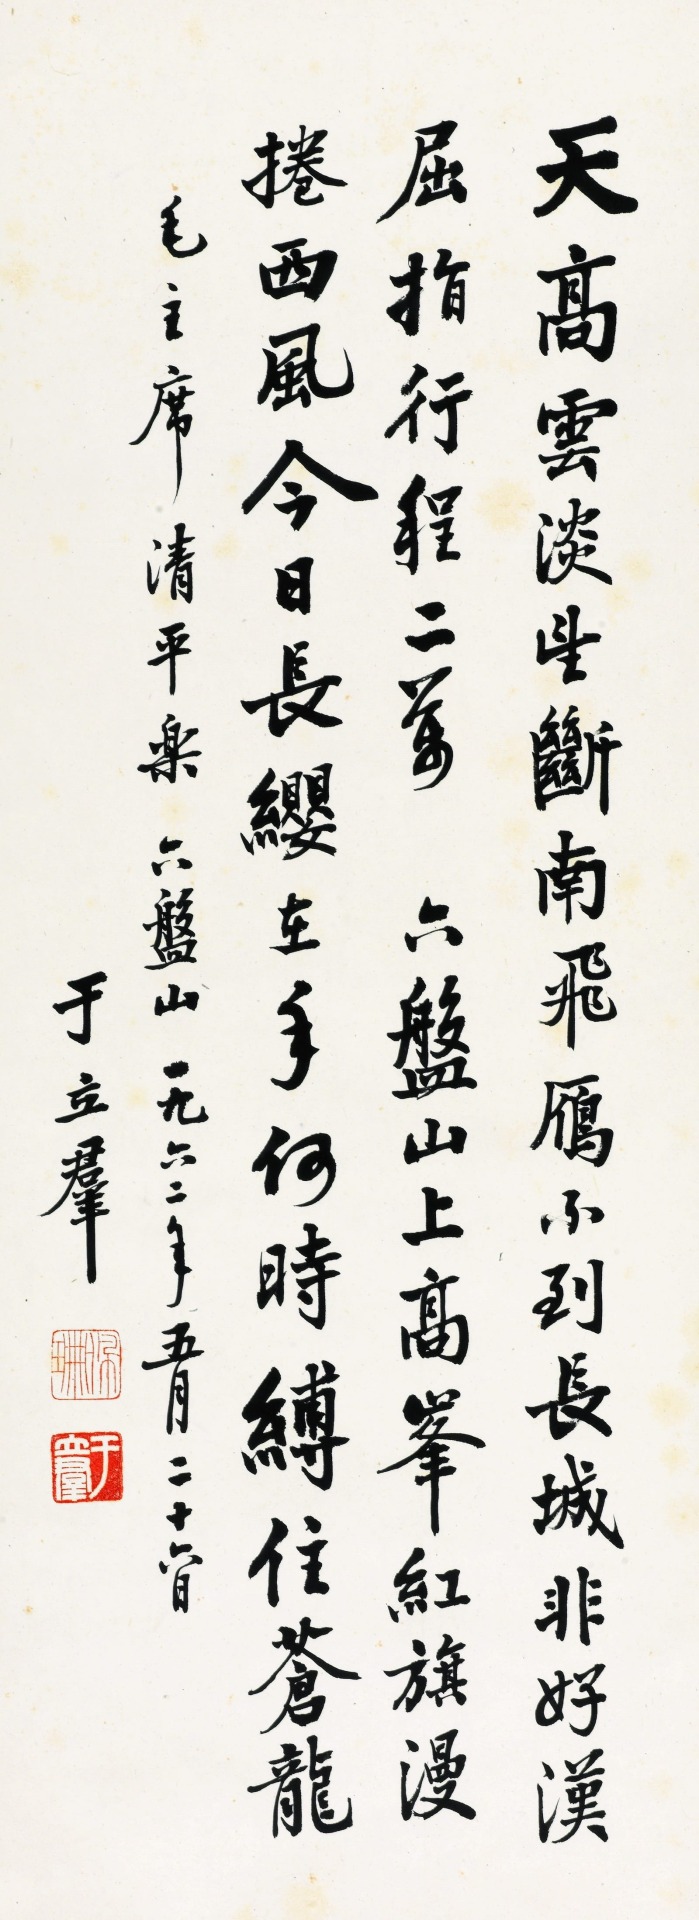 天高雲淡望斷南飛雁不到長城非好漢
屈指行程二萬　六盤山上高峯紅旗漫
捲西風今日長纓在手何時縛住蒼龍
毛主席清平樂　六盤山　一九六二年五月二十六日
于立羣
于立羣